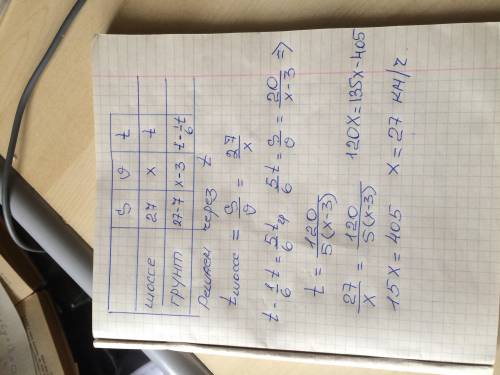 S υ t
шоссе 27 x t
грунт 27-7 x-3 t-1/6t
Решаем через t
t шоссе = S/υ = 27/x
t - 1/6 t = 5/6 t гр 5/6 t = S/υ = 20/x-3 =>
t = 120/5(x-3)
27/x = 120/5(x-3) 120x=135x-405
15x=405 x=27 км/ч.